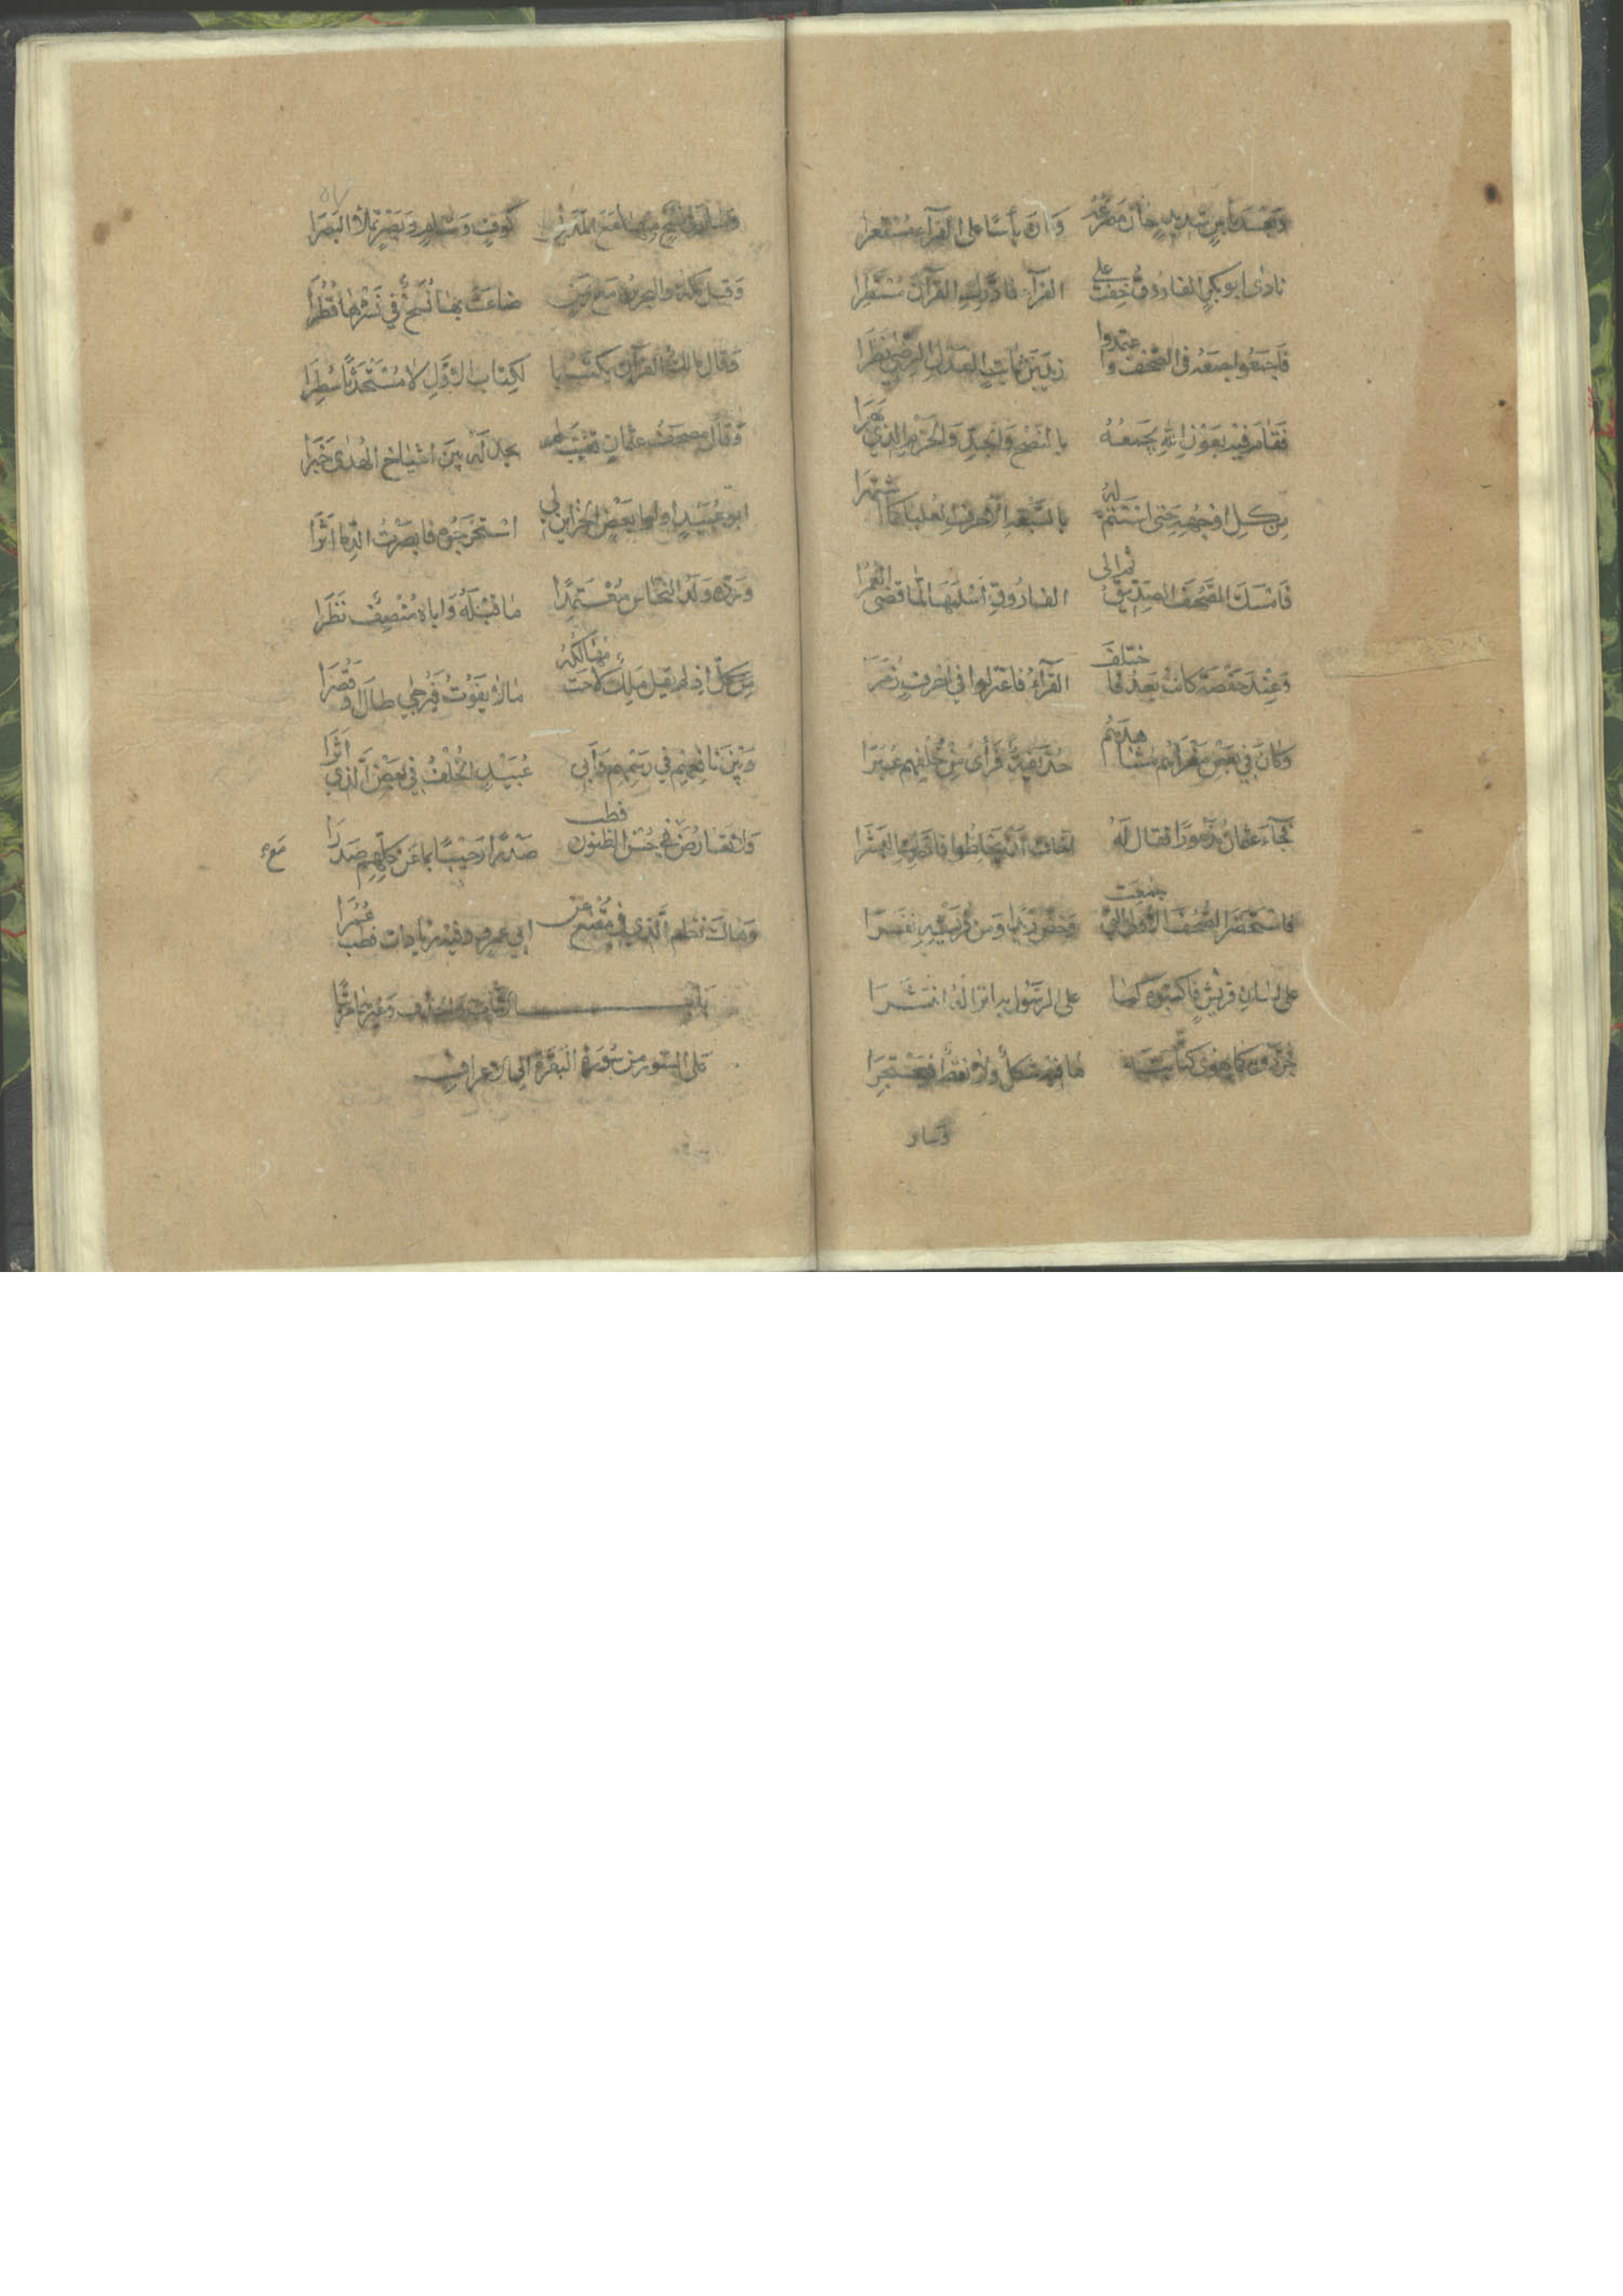 وَبَعْدَ بَأْسٍ شَدِيدٍ حَانَ مَصْرَعُهُ وَكَانَ بَأْسًا عَلَى القُرَّاءِ مُسْتَعِرَا
نَادَى ابو بَكْرٍ الفَارُوقُ خِفْتُ عَلَى القرآءِ فَادَّرِكِ القُرْآنَ مُسْتَطِرَا
فَاجْمَعُوا جَمْعَهُ فِى الصُّحْفِ وَاعْتَمَدُوا زَيْدَ بْنَ ثَابِتٍ العَدْلَ الرِّضَى نَظَرَا
فَقَامَ فِيهِ بِعَوْنِ اللهِ يَجْمَعُهُ بِالنُّصْحِ وَالجِدِّ وَالحَزْمِ الَّذِي بَهَرَا
مِنْ كُلِّ اَوْجُهِهِ حَتَّى اسْتَتَمَّ لَهُ بِالسَّبْعَةِ الاَحْرُفِ العُلْيَا كَمَا اشْتَهَرَا
فَامْسَكَ الصُّحُفَ الصِّدِّيقُ ثُمَّ إِلَى الفَارُوقِ أَسْلَمَهَا لَمَّا قَضَى العُمُرَا
وَعِنْدَ حَفْصَةَ كَانَتْ بَعْدُ فَاخْتَلَفَ القُرَّاءُ فَاعْتَزَلُوا فِي احْرُفٍ زُمَرَا
وَكَانَ فِي بَعْضِ مَغْزَاهُم مُشَاهِدَهُم حُذَيْفَةٌ فَرَأَى مِنْ خُلْفِهِم عِبَرَا
فَجَآءَ عُثْمَانَ مَذْعُورًا فَقَالَ لَهُ أَخَافُ أَنْ يَخْلِطُوا فَأَدْرِكِ البَشَرَا
فَاسْتَحْضَرَ الصُّحُفَ الاُولَى الَّتِي جُمِعَتْ وَخَصَّ زَيْدًا وَمِنْ قُرَيْشِهِ نَفَرَا
عَلَى لِسَانِ قُرَيْشٍ فَاكْتُبُوهُ كَمَا عَلَى الرَّسُولِ بِهِ انْزَالُهُ انْتَشَرَا
فَجَرَّدُوهُ كَمَا يَهْوَى كِتَابَتَهُ مَا فِيهِ شَكْلٌ وَلا نَقْطٌ فَيَحْتَجِرَا
وَسَار
وَسَارَ فِي نُسَخٍ مِنْهَا مَعَ المَدَنِي كُوفٍ وَشَامٍ وَبَصْرٍ تَمْلأُ البَصَرَا
وَقِيلَ مَكَّةَ وَالبَحْرَيْنِ مَعْ يَمَنٍ ضَاعَتْ بِهَا نُسَخٌ فِي نَشْرِهَا قُطُرَا
وَقَالَ مَالِكٌ القُرْآنُ يُكْتَبُ بِا لكِتَابِ الاَوَّلِ لا مُسْتَحْدَثًا سُطِرَا
وَقَالَ مُصْحَفُ عُثْمَانٍ تَغَيَّبَ لَمْ نَجِدْ لَهُ بَيْنَ اشْيَاخِ الهُدَى خَبَرَا
ابو عُبَيْدٍ اولوا بَعْضِ الخَزَائِنِ لِي اسْتَخْرَجُوهُ فَابْصَرْتُ الدِّمَا اَثَرَا
وَرَدَّهُ وَلَدُ النَّحَّاسِ مُعْتَمِدًا مَا قَبْلَهُ وَابَاهُ مُنْصِفٌ نَظَرَا
إِذ لَمْ يَقُلْ مَالِكٌ لاحَتْ مَهَالِكُهُ مَا لا يَفُوتُ فَيُرْجَى طَالَ أَوْ قَصُرَا
وَبَيْنَ نَافِعِهِم فِي رَسْمِهِمْ وَأَبِي عُبَيْدٍ الخُلْفُ فِي بَعْضِ الَّذِي أَثَرَا
وَلا تَعَارُضَ مَعْ حُسْنِ الظُّنُونِ فَطِبْ صَدْرًا رَحِيبًا بِمَا عَنْ كُلِّهِمْ صَدَرَا مَعْ
وَهَاكَ نَظْمَ الَّذِي فِي مُقْنِعٍ عَنْ أَبِي عَمْرٍو وَفِيهِ زِيَادَاتٌ فَطِبْ عُمُرَا
بَابُ الاثبَاتِ وَالحَذْفِ وَغَيْرِهِمَا مُرَتَّبًا
عَلَى السُّوَرِ مِنْ سُورَةِ البَقَرَةِ الى الاَعرَافِ